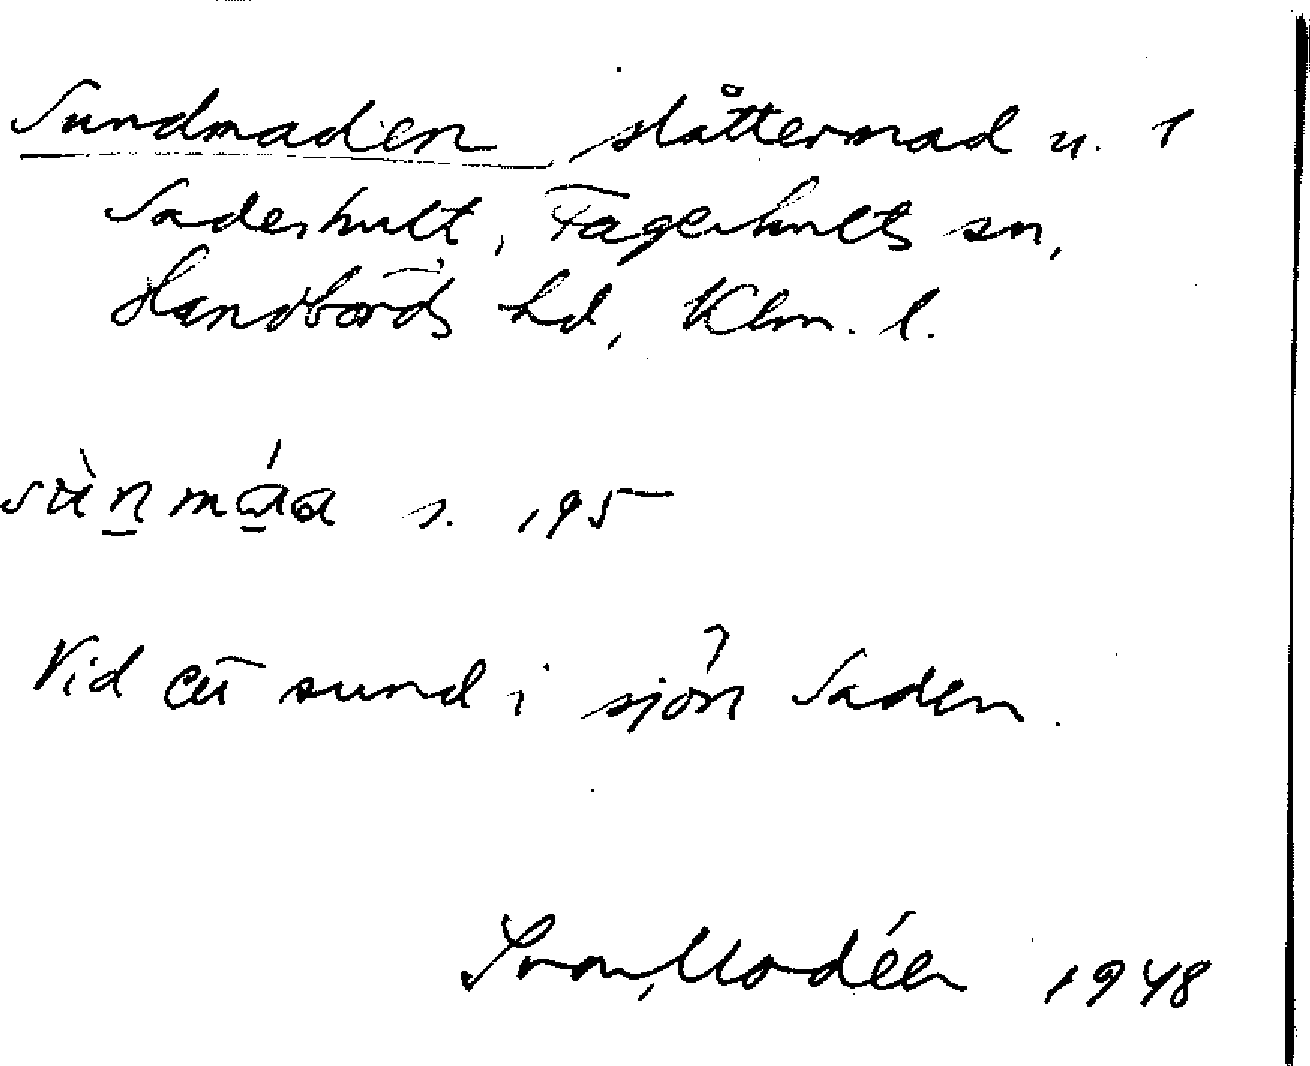 Sundmaden slåttermad u. 1
Saderhult, Fagerhults sn,
Handbörds hd, Klm. l.
sùn̲ má̲a s. 195
Vid ett sund i sjön Saden.
Ivar Modéer 1948